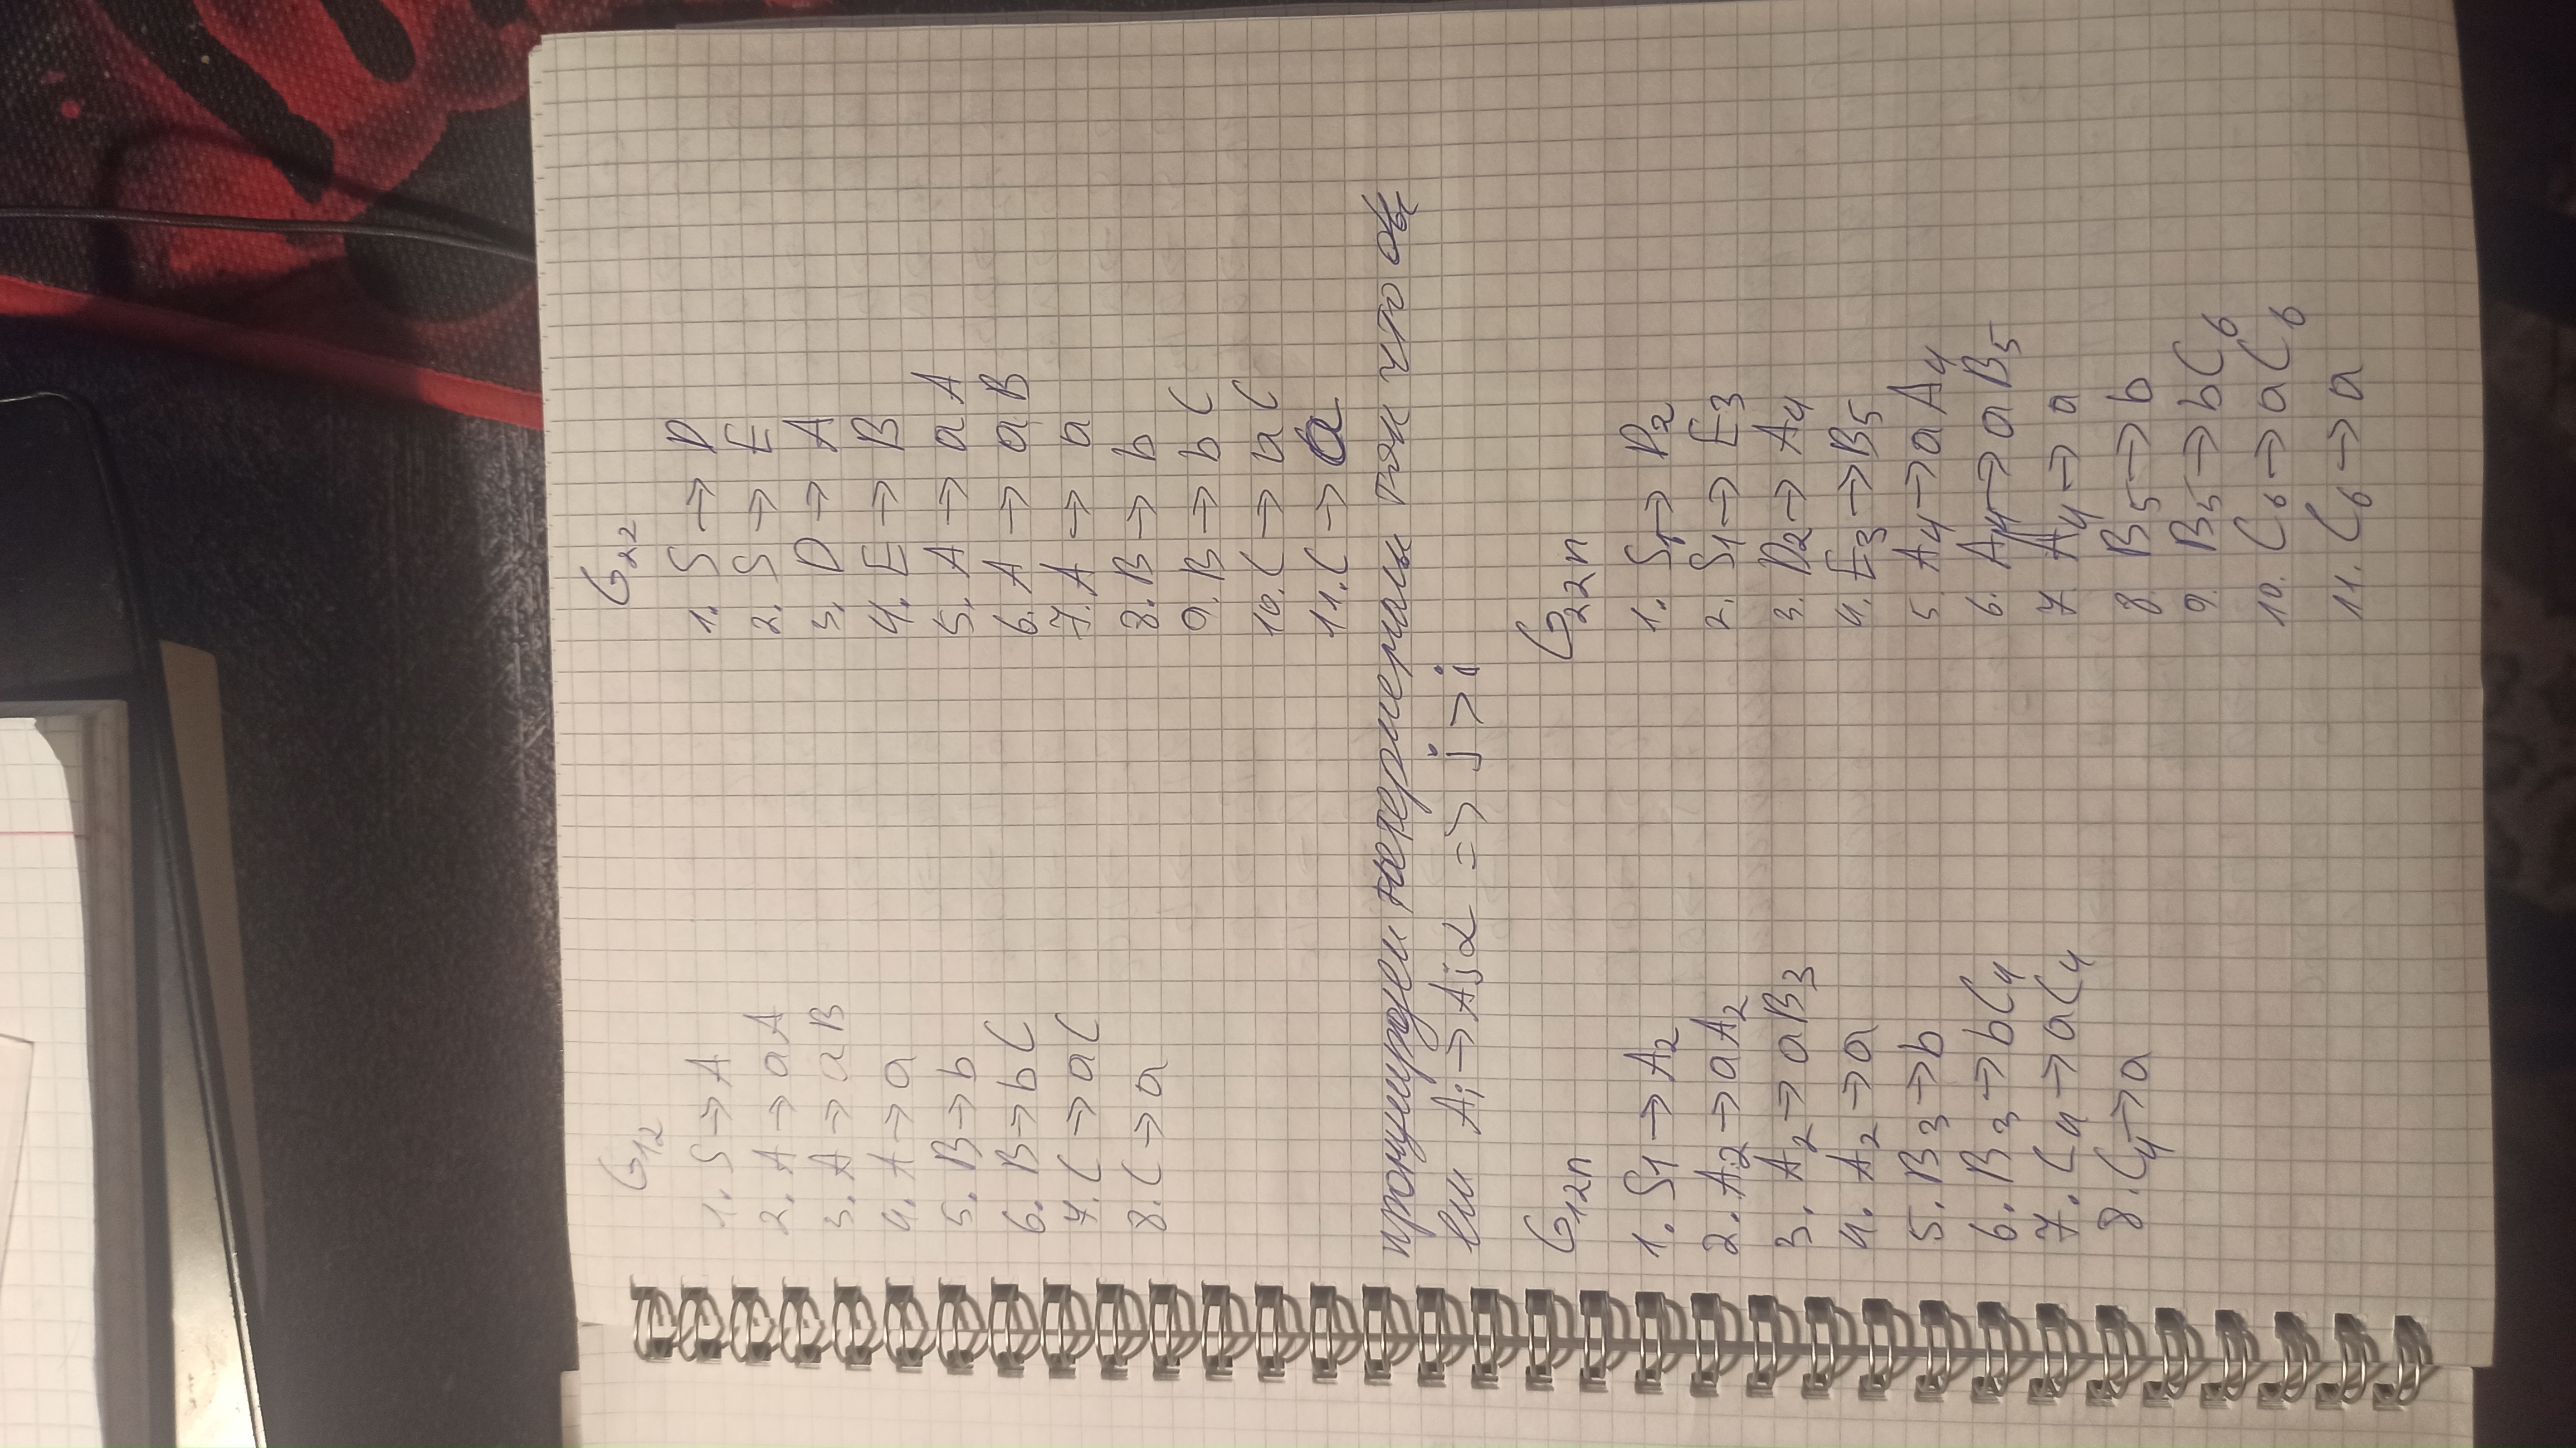 G12
1. S → A
2. A → aA
3. A → aB
4. A → a
5. B → b
6. B → bC
7. C → aC
8. C → a
G22
1. S → D
2. S → E
3. D → A
4. E → B
5. A → aA
6. A → aB
7. A → a
8. B → b
9. B → bC
10. C → aC
11. C → a
пронумеруем нетерминалы так что бы
если Ai → Ajα => j > i
G12n
1. S1 → A2
2. A2 → aA2
3. A2 → aB3
4. A2 → a
5. B3 → b
6. B3 → bC4
7. C4 → aC4
8. C4 → a
G22n
1. S1 → D2
2. S1 → E3
3. D2 → A4
4. E3 → B5
5. A4 → aA4
6. A4 → aB5
7. A4 → a
8. B5 → b
9. B5 → bC6
10. C6 → aC6
11. C6 → a